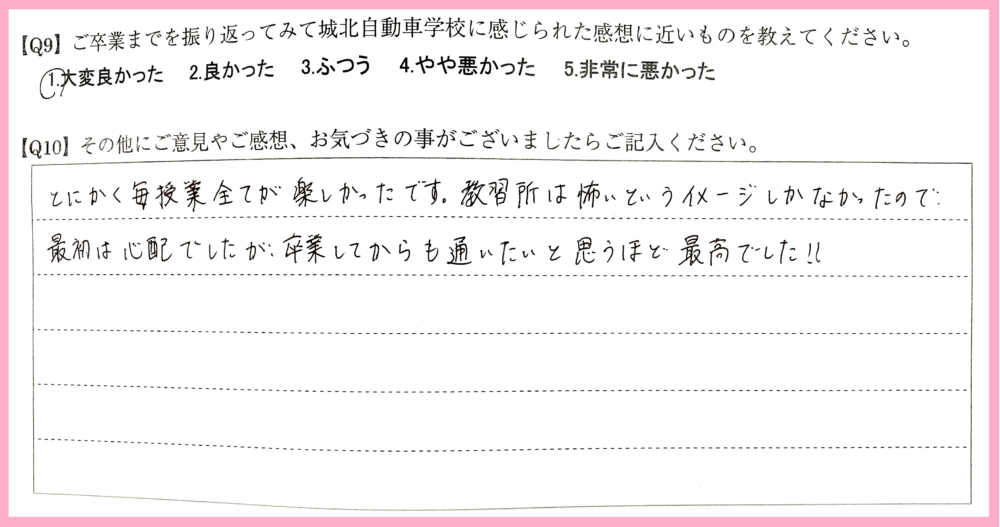 【Q9】ご卒業までを振り返ってみて城北自動車学校に感じられた感想に近いものを教えてください。
1.大変良かった 2.良かった 3.ふつう 4.やや悪かった 5.非常に悪かった
【Q10】その他にご意見やご感想、お気づきの事がございましたらご記入ください。
とにかく毎授業全てが楽しかったです。教習所は怖いというイメージしかなかったので、
最初は心配でしたが、卒業してからも通いたいと思うほど最高でした!!